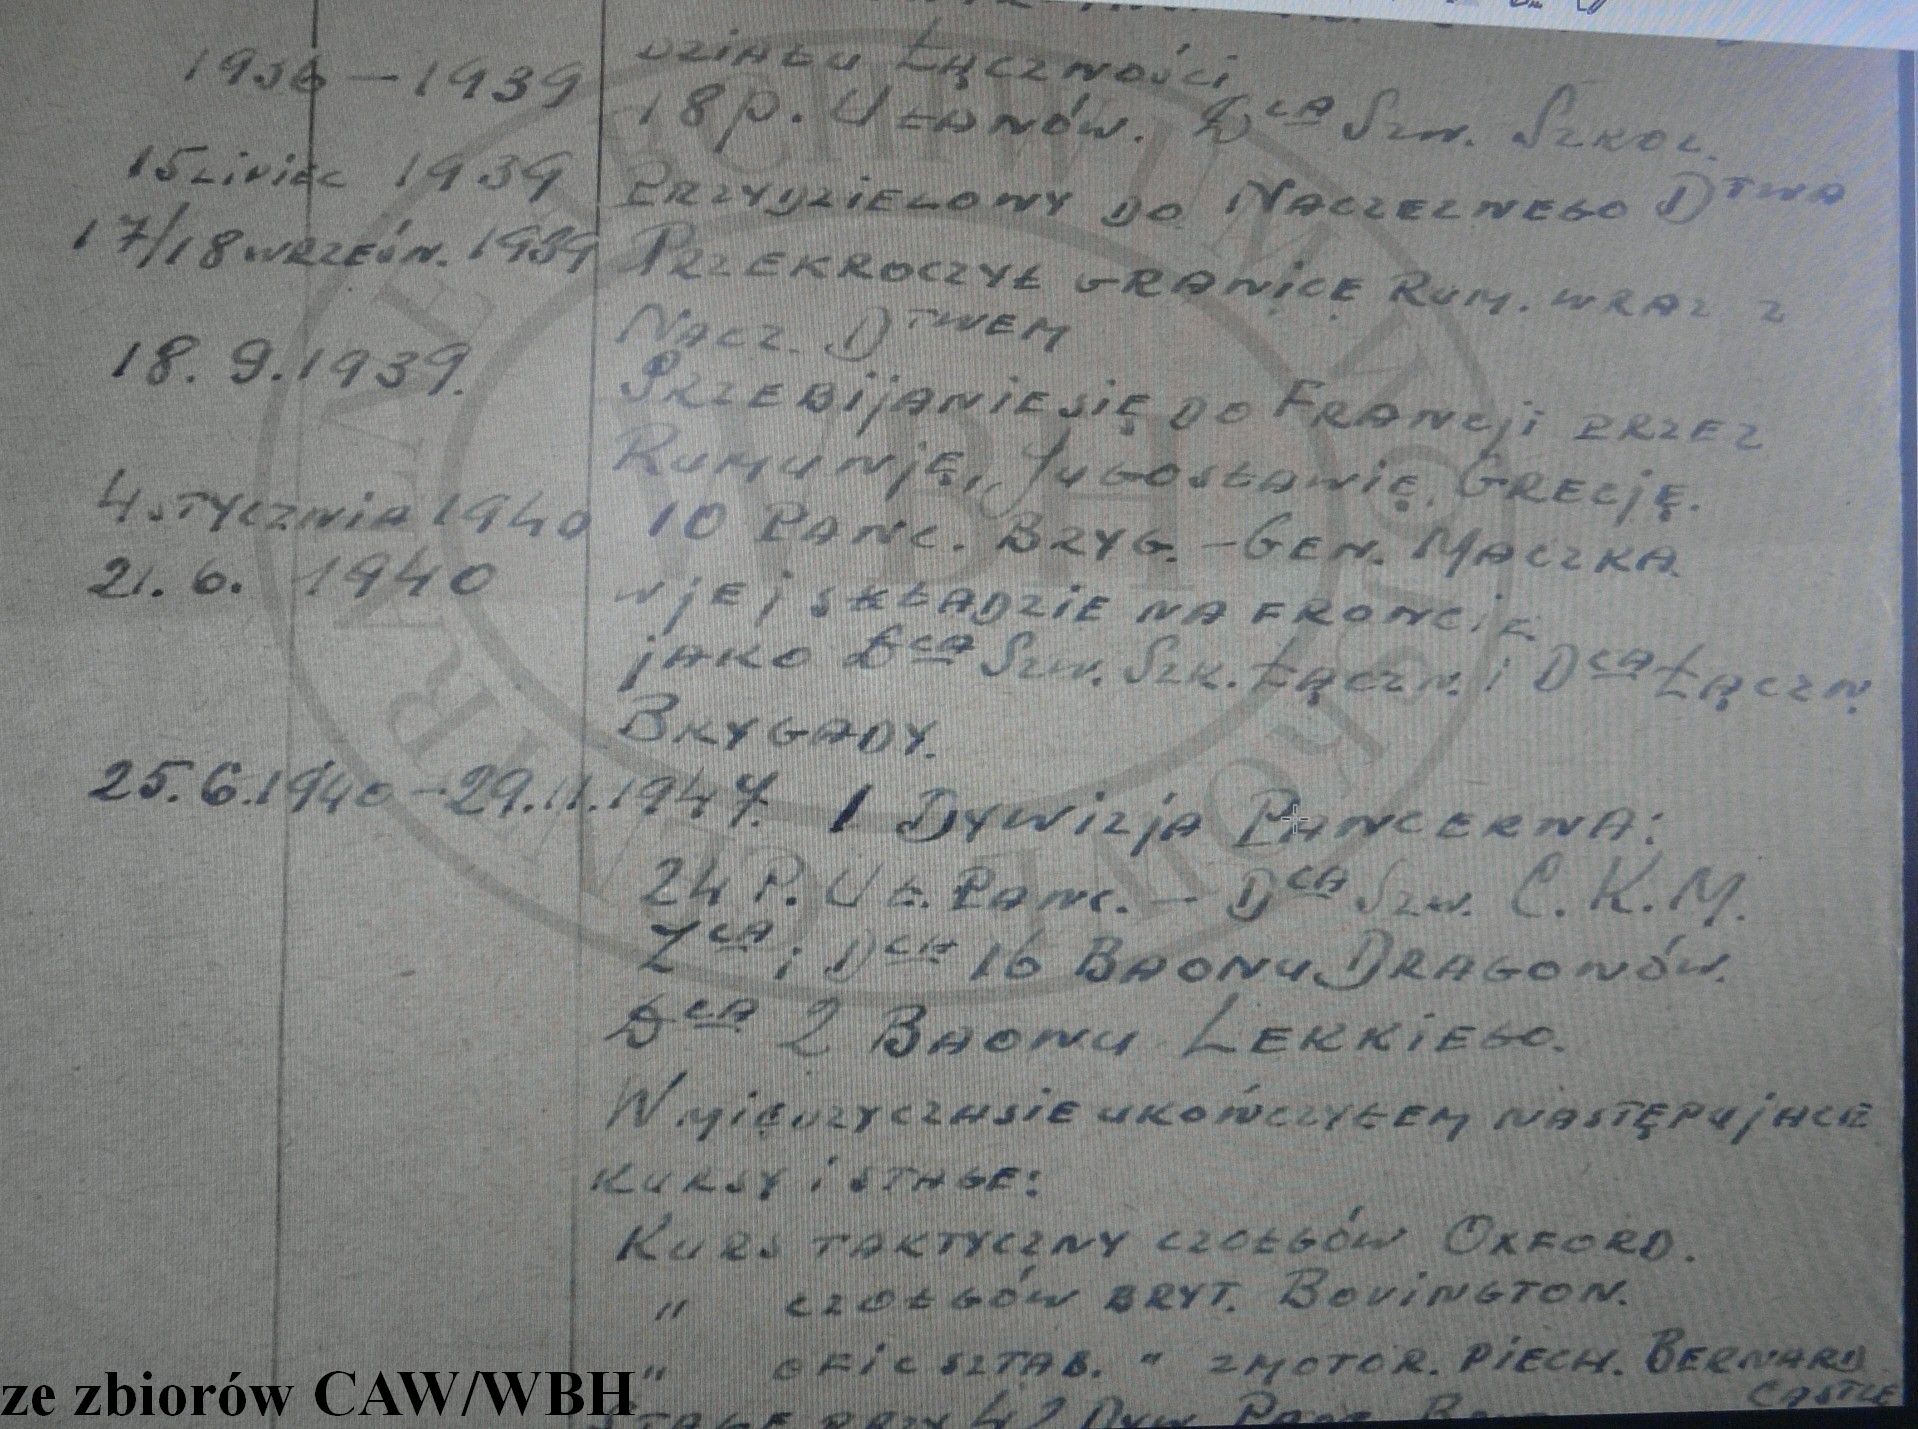 DZIAŁU ŁĄCZNOŚCI
1936 – 1939 18 P. UŁANÓW. DCA SZW. SZKOL.
15 LIPIEC 1939 PRZYDZIELONY DO NACZELNEGO DTWA
17/18 WRZEŚN. 1939 PRZEKROCZYŁ GRANICĘ RUM. WRAZ Z
NACZ. DTWEM
18. 9. 1939. PRZEBIJANIE SIĘ DO FRANCJI PRZEZ
RUMUNJĘ, JUGOSŁAWIĘ, GRECJĘ.
4 STYCZNIA 1940 10 PANC. BRYG. – GEN. MACZKA.
21. 6. 1940 W JEJ SKŁADZIE NA FRONCIE
JAKO DCA SZW. SZK. ŁĄCZN. I DCA ŁĄCZN.
BRYGADY.
25. 6. 1940 – 29. 11. 1947. 1 DYWIZJA PANCERNA:
24 P. UŁ. PANC. – DCA SZW. C.K.M.
ZCA I DCA 16 BAONU DRAGONÓW.
DCA 2 BAONU LEKKIEGO.
W MIĘDZYCZASIE UKOŃCZYŁEM NASTĘPUJĄCE
KURSY I STAGE:
KURS TAKTYCZNY CZOŁGÓW OXFORD.
" CZOŁGÓW BRYT. BOVINGTON.
" OFIC SZTAB. " ZMOTOR. PIECH. BERNARD
CASTLE
STAGE PRZY 42 DYW. PANC.
ARCHIWUM
WBH
ze zbiorów CAW/WBH